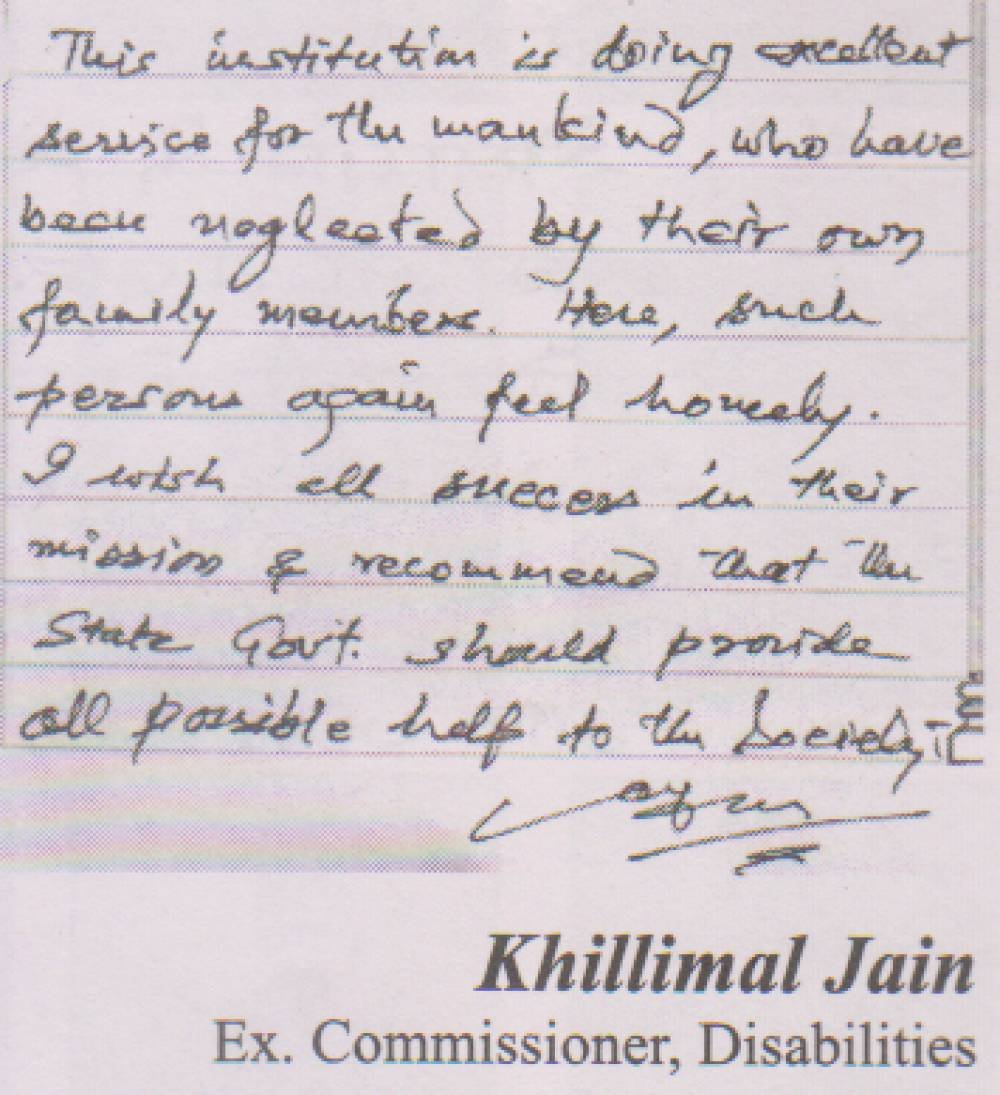 This institution is doing excellent
service for the mankind, who have
been neglected by their own
family members. Here, such
persons again feel homely.
I wish all success in their
mission & recommend that the
State Govt. should provide
all possible help to the Society.
Khillimal Jain
Ex. Commissioner, Disabilities